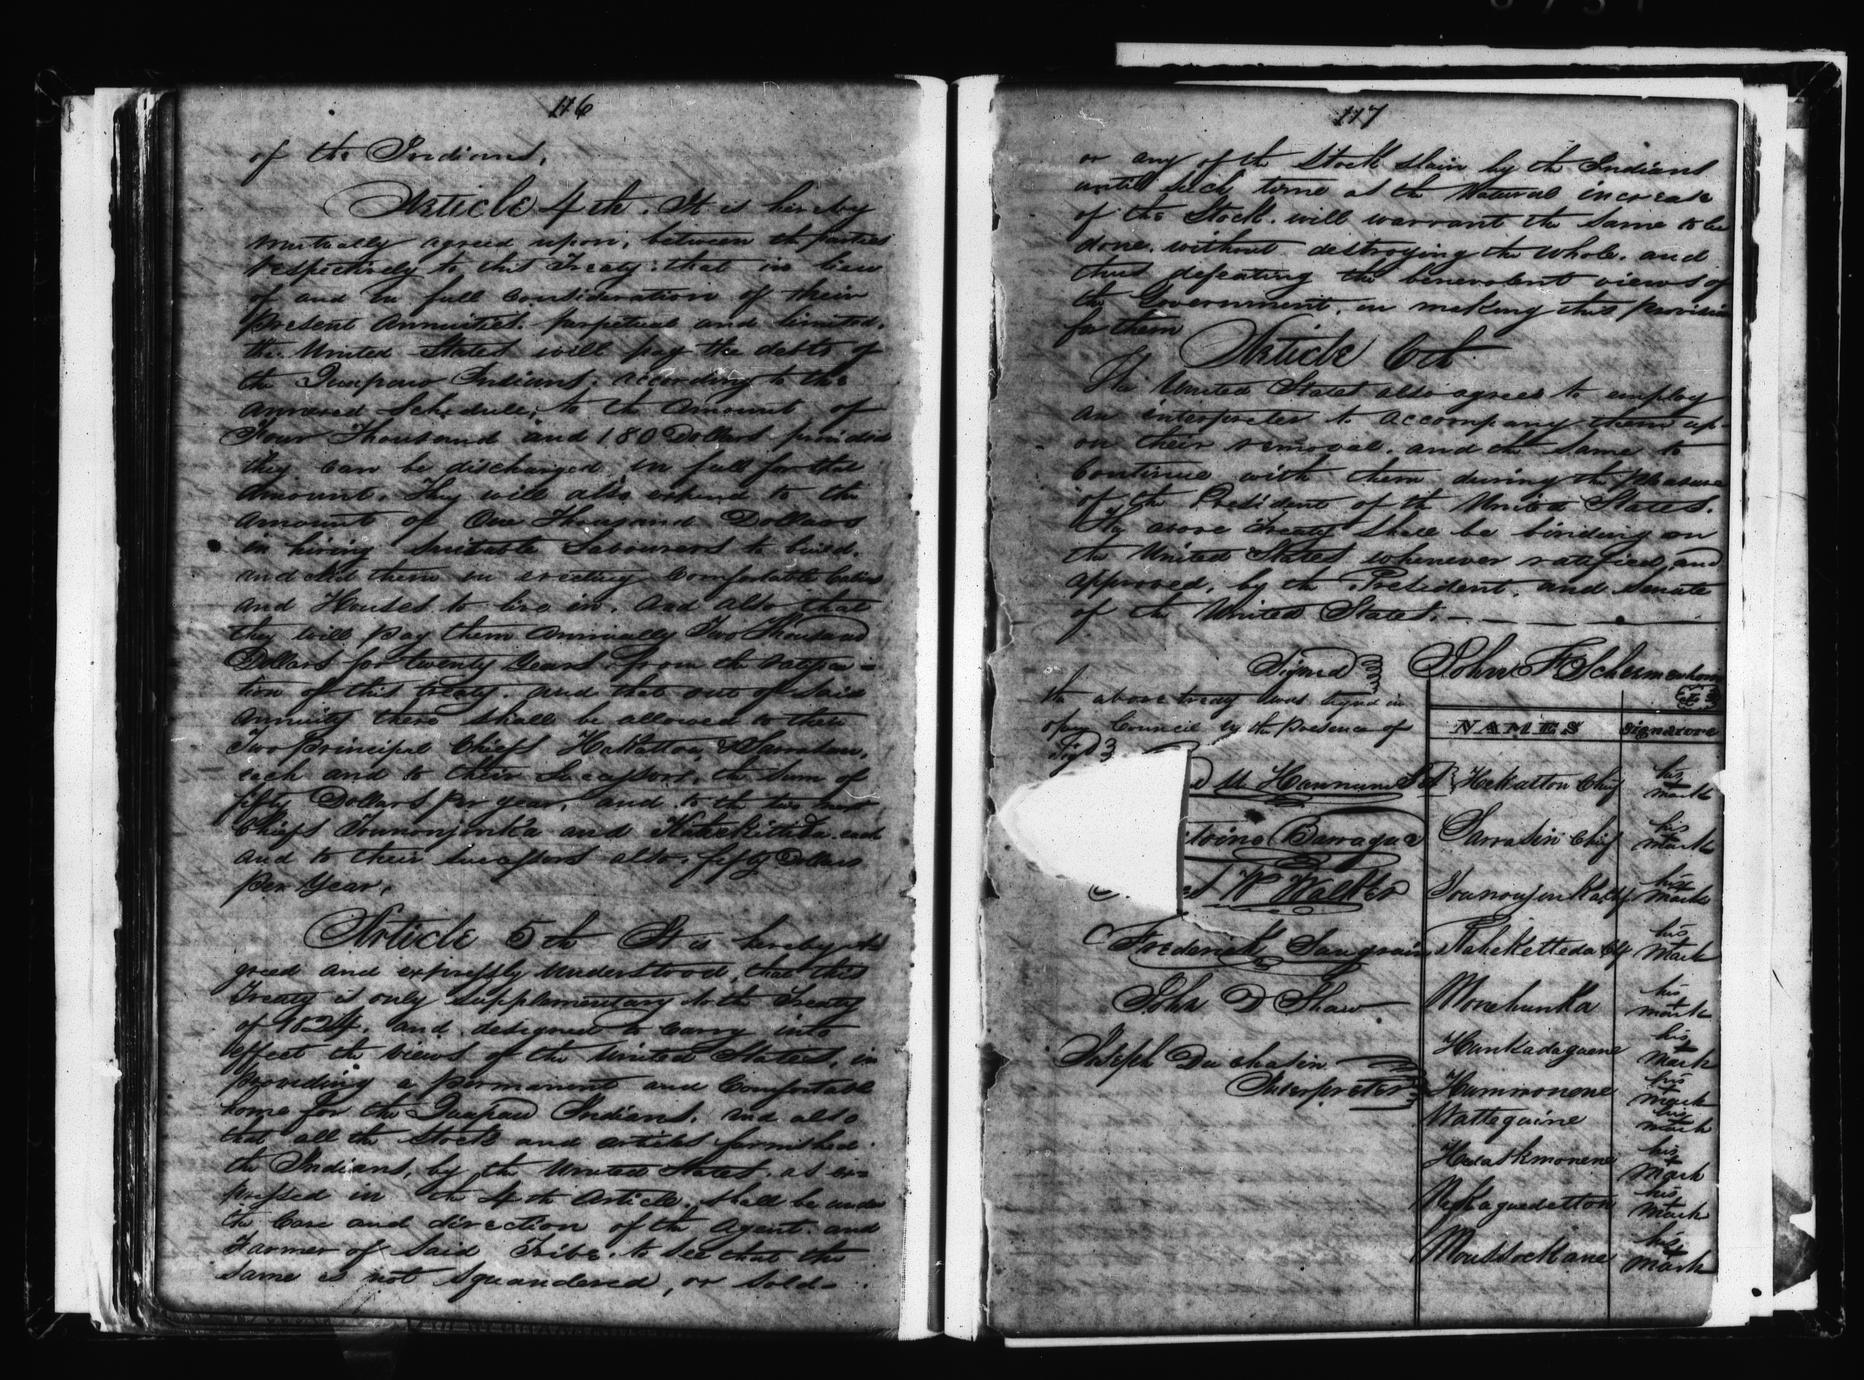 116
of the Indians.
Article 4th. It is hereby
mutually agreed upon, between the parties
respectively to this Treaty. that in lieu
of and in full consideration of their
present annuities. perpetual and limited.
the United States will pay the debts of
the Quapaw Indians. according to the
annexed Schedule, to the amount of
Four Thousand and 180 Dollars provided
they can be discharged in full for that
amount. They will also expend to the
amount of One Thousand Dollars
in hiring suitable Labourers to build.
and aid them in erecting comfortable Cabins
and Houses to live in. And also that
they will pay them annually Two Thousand
Dollars for twenty Years from the ratifica=
tion of this treaty. and that out of said
annuity there shall be allowed to their
Two Principal Chiefs Hekatton, & Sarrasan,
each and to their Successors, the sum of
fifty Dollars per year, and to the two next
Chiefs Tounonjinka and Kahekitteda each
and to their successors also, fifty Dollars
per Year.
Article 5th It is hereby a
greed and expressly understood, that this
Treaty is only supplementary to the Treaty
of 1824. and designed to carry into
effect the views of the United States, in
providing a permanent and comfortable
home for the Quapaw Indians. and also
that all the stock and articles furnished
the Indians, by the United States, as ex=
pressed in the 4th Article. shall be under
the Care and direction of the Agent. and
Farmer of said Tribe. to see that the
same is not squandered, or sold-
117
or any of the stock slain by the Indians
until such time as the Natural increase
of the Stock. will warrant the same to be
done. without destroying the whole. and
thus defeating the benevolent views of
the Government. in making this provision
for them
Article 6th
The United States also agrees to employ
an interpreter to accompany them up-
on their removal. and the same to
continue with them during the pleasure
of the President of the United States.
The above treaty shall be binding on
the United States whenever ratified, and
approved, by the President. and senate
of the United States.
Signed John F Schermerhorn
the above treaty was signed in
open Council by the presence of
NAMES Signature
Sigd
Hannum Hekatton Chief his mark
Barraque Sarrasin Chief his mark
W Walker his mark
Frederick Saugrain Kahekitteda his mark
John D Shaw Monehunka his mark
Joseph Duchasin
Interpreter
Hunkadagaene his mark
Hummonene his mark
Wattequine his mark
Hadaskmonene his mark
Nekaguedetton his mark
Moussockane his mark